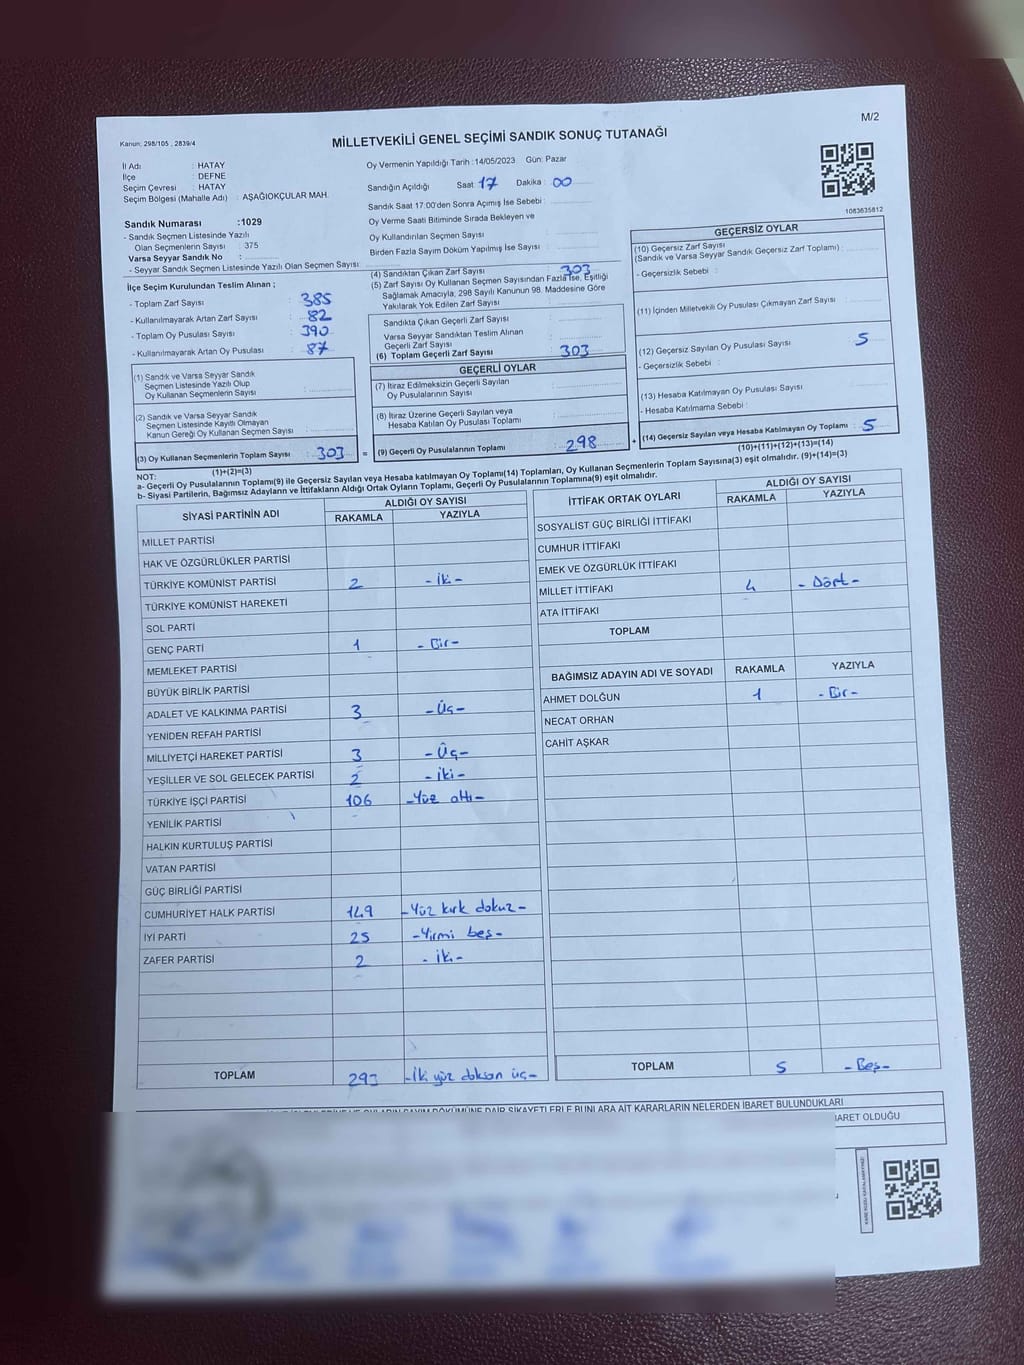 M/2
Kanun: 298/105 , 2839/4
MİLLETVEKİLİ GENEL SEÇİMİ SANDIK SONUÇ TUTANAĞI
İl Adı : HATAY
İlçe : DEFNE
Seçim Çevresi : HATAY
Seçim Bölgesi (Mahalle Adı) : AŞAĞIOKÇULAR MAH.
Oy Vermenin Yapıldığı Tarih : 14/05/2023 Gün: Pazar
Sandığın Açıldığı Saat : 17 Dakika : 00
Sandık Saat 17:00'den Sonra Açımış İse Sebebi :
Oy Verme Saati Bitiminde Sırada Bekleyen ve
Oy Kullandırılan Seçmen Sayısı :
Birden Fazla Sayım Döküm Yapılmış İse Sayısı :
1083635812
Sandık Numarası :1029
- Sandık Seçmen Listesinde Yazılı
Olan Seçmenlerin Sayısı : 375
Varsa Seyyar Sandık No :
- Seyyar Sandık Seçmen Listesinde Yazılı Olan Seçmen Sayısı :
İlçe Seçim Kurulundan Teslim Alınan ;
- Toplam Zarf Sayısı : 385
- Kullanılmayarak Artan Zarf Sayısı : 82
- Toplam Oy Pusulası Sayısı : 390
- Kullanılmayarak Artan Oy Pusulası : 87
(1) Sandık ve Varsa Seyyar Sandık
Seçmen Listesinde Yazılı Olup
Oy Kullanan Seçmenlerin Sayısı :
(2) Sandık ve Varsa Seyyar Sandık
Seçmen Listesinde Kayıtlı Olmayan
Kanun Gereği Oy Kullanan Seçmen Sayısı :
(3) Oy Kullanan Seçmenlerin Toplam Sayısı : 303
(1)+(2)=(3)
(4) Sandıktan Çıkan Zarf Sayısı : 303
(5) Zarf Sayısı Oy Kullanan Seçmen Sayısından Fazla İse, Eşitliği
Sağlamak Amacıyla, 298 Sayılı Kanunun 98. Maddesine Göre
Yakılarak Yok Edilen Zarf Sayısı :
Sandıkta Çıkan Geçerli Zarf Sayısı :
Varsa Seyyar Sandıktan Teslim Alınan
Geçerli Zarf Sayısı :
(6) Toplam Geçerli Zarf Sayısı : 303
GEÇERLİ OYLAR
(7) İtiraz Edilmeksizin Geçerli Sayılan
Oy Pusulalarının Sayısı :
(8) İtiraz Üzerine Geçerli Sayılan veya
Hesaba Katılan Oy Pusulası Toplamı :
= (9) Geçerli Oy Pusulalarının Toplamı : 298
GEÇERSİZ OYLAR
(10) Geçersiz Zarf Sayısı
(Sandık ve Varsa Seyyar Sandık Geçersiz Zarf Toplamı) :
- Geçersizlik Sebebi :
(11) İçinden Milletvekili Oy Pusulası Çıkmayan Zarf Sayısı :
(12) Geçersiz Sayılan Oy Pusulası Sayısı : 5
- Geçersizlik Sebebi :
(13) Hesaba Katılmayan Oy Pusulası Sayısı :
- Hesaba Katılmama Sebebi :
+ (14) Geçersiz Sayılan veya Hesaba Katılmayan Oy Toplamı : 5
(10)+(11)+(12)+(13)=(14)
NOT:
a- Geçerli Oy Pusulalarının Toplamı(9) ile Geçersiz Sayılan veya Hesaba katılmayan Oy Toplamı(14) Toplamları, Oy Kullanan Seçmenlerin Toplam Sayısına(3) eşit olmalıdır. (9)+(14)=(3)
b- Siyasi Partilerin, Bağımsız Adayların ve İttifakların Aldığı Ortak Oyların Toplamı, Geçerli Oy Pusulalarının Toplamına(9) eşit olmalıdır.
SİYASİ PARTİNİN ADI ALDIĞI OY SAYISI
RAKAMLA YAZIYLA
MİLLET PARTİSİ
HAK VE ÖZGÜRLÜKLER PARTİSİ
TÜRKİYE KOMÜNİST PARTİSİ 2 - İki -
TÜRKİYE KOMÜNİST HAREKETİ
SOL PARTİ
GENÇ PARTİ 1 - Bir -
MEMLEKET PARTİSİ
BÜYÜK BİRLİK PARTİSİ
ADALET VE KALKINMA PARTİSİ 3 - Üç -
YENİDEN REFAH PARTİSİ
MİLLİYETÇİ HAREKET PARTİSİ 3 - Üç -
YEŞİLLER VE SOL GELECEK PARTİSİ 2 - İki -
TÜRKİYE İŞÇİ PARTİSİ 106 - Yüz altı -
YENİLİK PARTİSİ
HALKIN KURTULUŞ PARTİSİ
VATAN PARTİSİ
GÜÇ BİRLİĞİ PARTİSİ
CUMHURİYET HALK PARTİSİ 149 - Yüz kırk dokuz -
İYİ PARTİ 25 - Yirmi beş -
ZAFER PARTİSİ 2 - İki -
TOPLAM 293 - İki yüz doksan üç -
İTTİFAK ORTAK OYLARI ALDIĞI OY SAYISI
RAKAMLA YAZIYLA
SOSYALİST GÜÇ BİRLİĞİ İTTİFAKI
CUMHUR İTTİFAKI
EMEK VE ÖZGÜRLÜK İTTİFAKI
MİLLET İTTİFAKI 4 - Dört -
ATA İTTİFAKI
TOPLAM
BAĞIMSIZ ADAYIN ADI VE SOYADI RAKAMLA YAZIYLA
AHMET DOLĞUN 1 - Bir -
NECAT ORHAN
CAHİT AŞKAR
TOPLAM 5 - Beş -
DÖKÜMÜNE DAİR ŞİKAYETLERLE BUNLARA AİT KARARLARIN NELERDEN İBARET BULUNDUKLARI
OLDUĞU